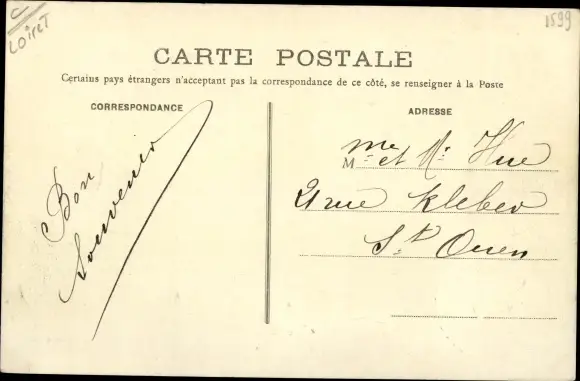 C
LOIRET
1599
CARTE POSTALE
Certains pays étrangers n'acceptant pas la correspondance de ce côté, se renseigner à la Poste
CORRESPONDANCE
Bon
Souvenir
ADRESSE
M me et Mr Hue
21 rue Kleber
St Ouen